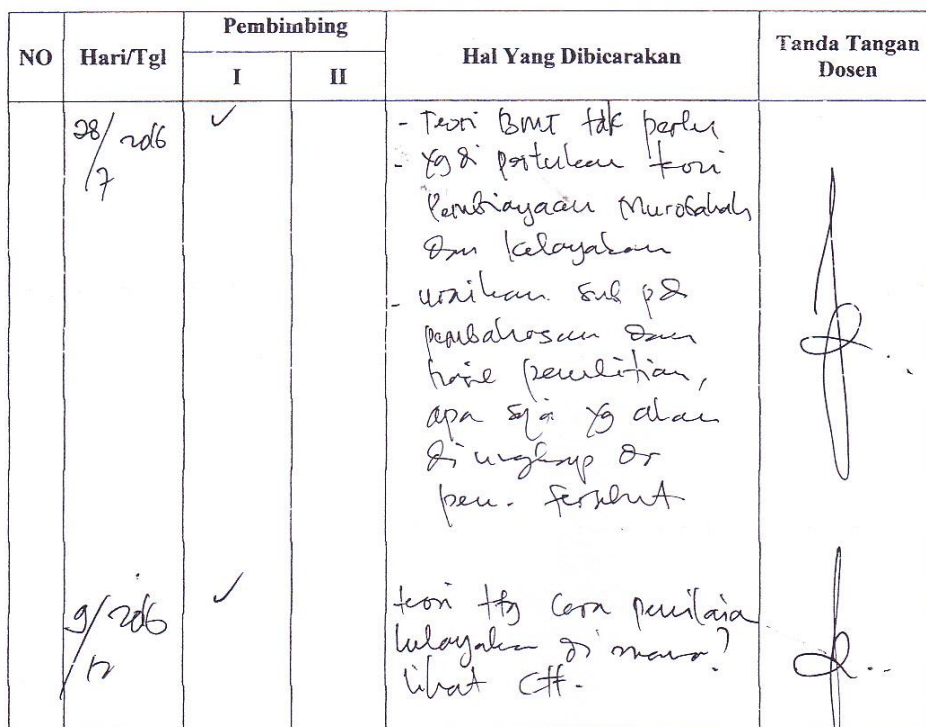 NO Hari/Tgl Pembimbing Hal Yang Dibicarakan Tanda Tangan Dosen
I II
28/7 2016 ✓ - Teori BMT tdk perlu
- yg di perlukan teori
Pembiayaan Murobahah
dan kelayakan
- uraikan sub pd
pembahasan dan
hasil penelitian,
apa saja yg akan
di ungkap dr
pen. tersebut
9/12 2016 ✓ teori ttg cara penilaia
kelayakan di mana?
lihat Ctt.